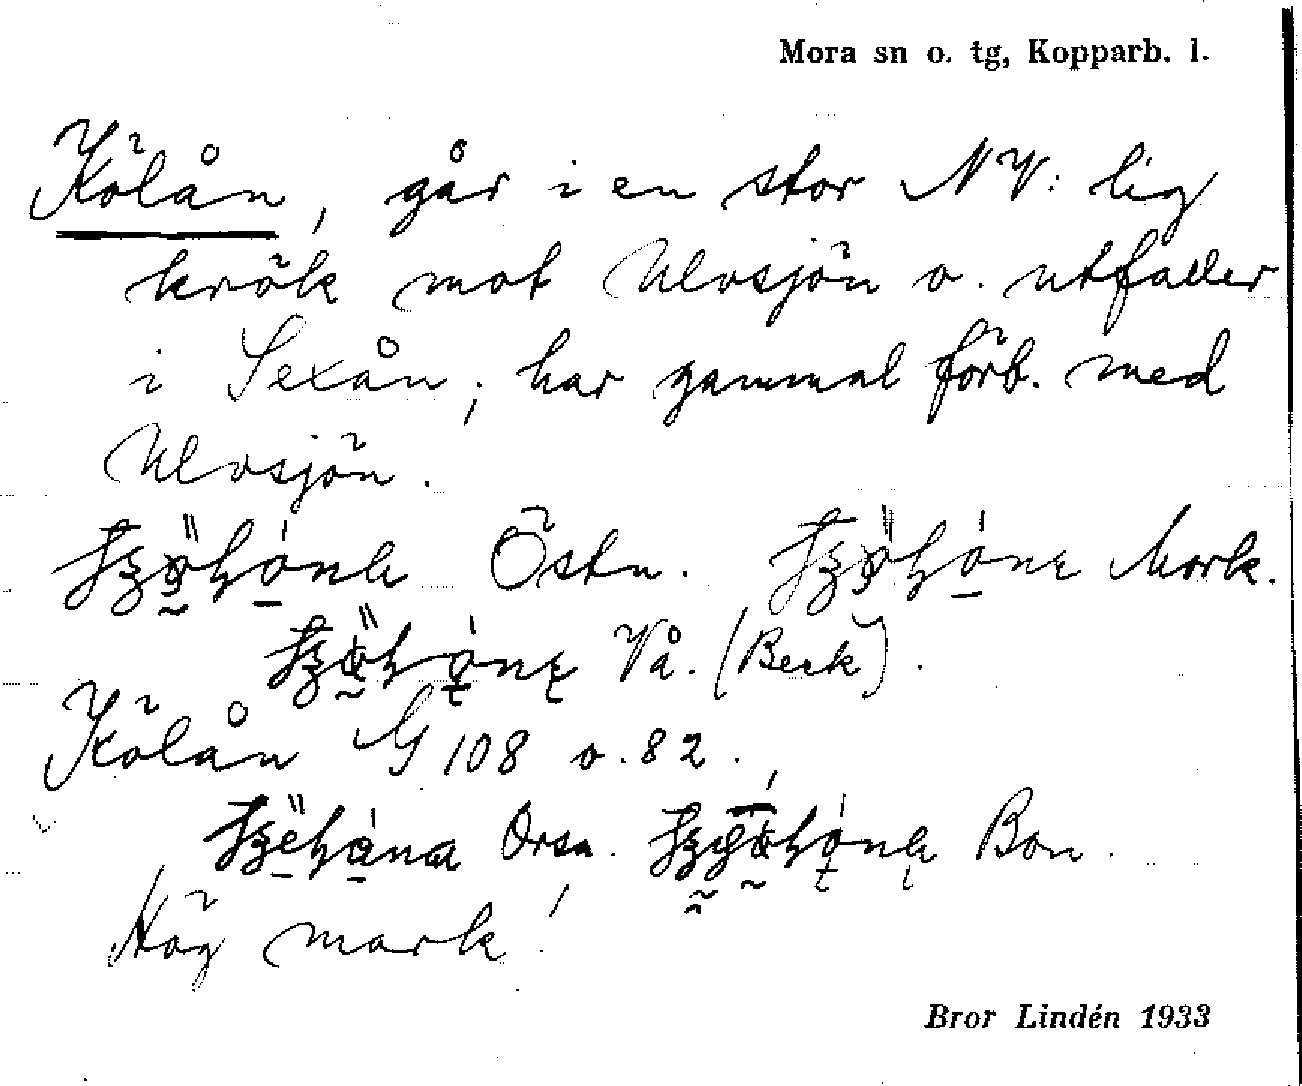 Mora sn o. tg, Kopparb. l.
Kölån, går i en stor NV: lig
krök mot Ulvsjön o. utfaller
i Sexån; har gammal förb. med
Ulvsjön.
Östn. Mork.
Vå. (Beck).
Kölån G 108 o. 82.
Orsa. Bon.
Hög mark!
Bror Lindén 1933